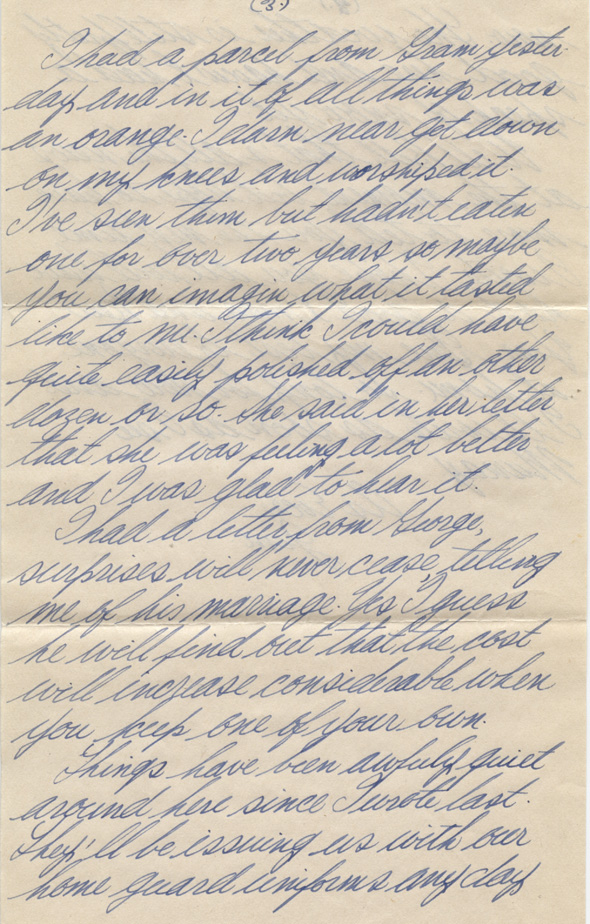 (3.)
I had a parcel from Gram yester-
day and in it of all things was
an orange. I darn near got down
on my knees and worshiped it.
I've seen them but hadn't eaten
one for over two years so maybe
you can imagin what it tasted
like to me. I think I could have
quite easily polished off an other
dozen or so. She said in her letter
that she was feeling a lot better
and I was glad to hear it.
I had a letter from George,
surprises will never cease, telling
me of his marriage. Yes I guess
he will find out that the cost
will increase considerable when
you keep one of your own.
Things have been awfully quiet
around here since I wrote last.
They'll be issuing us with our
home guard uniforms any day